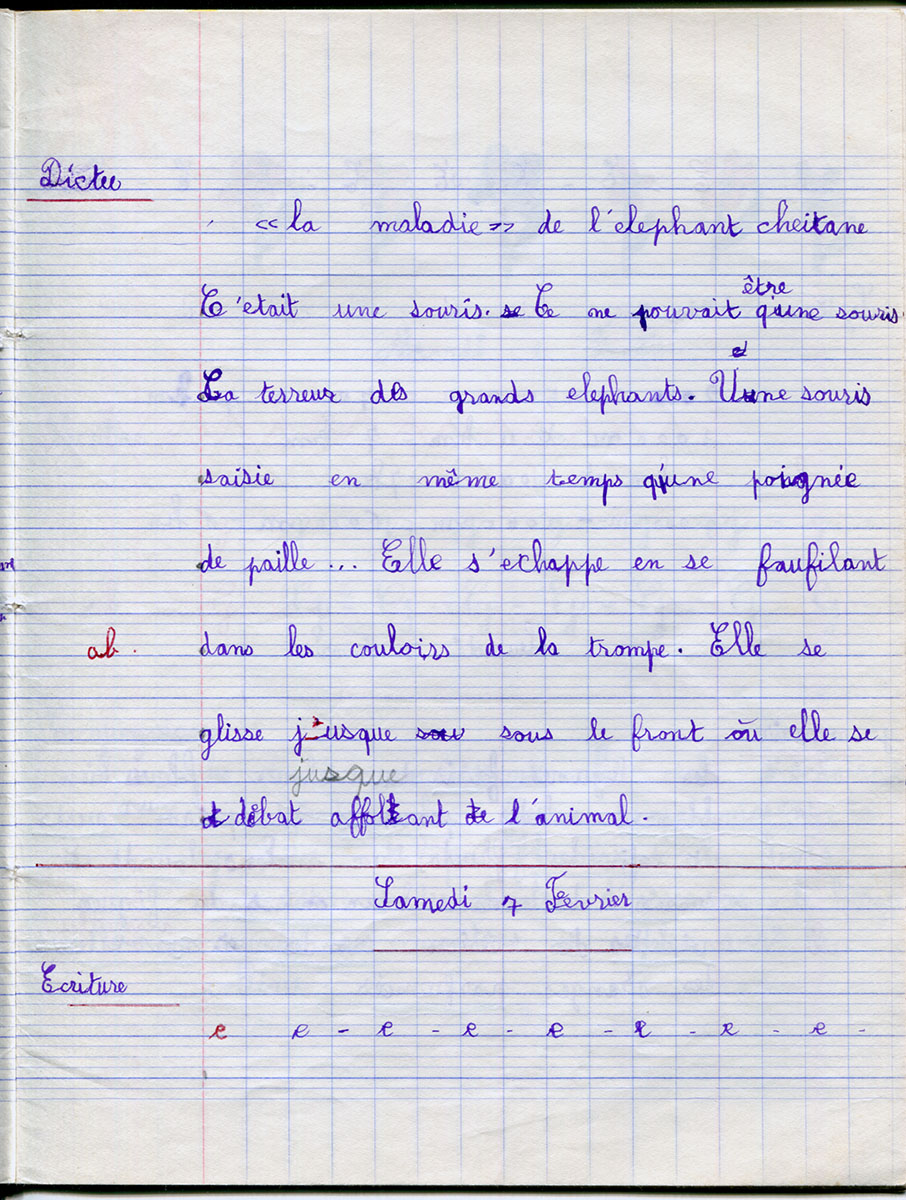 Dictee
«la maladie» de l'elephant cheitane
être
C'etait une souris. se Ce ne pouvait qu'une souris.
La terreur des grands elephants. Une souris
saisie en même temps qu'une poignée
de paille... Elle s'echappe en se faufilant
ab. dans les couloirs de la trompe. Elle se
glisse j'usque sous sous le front où elle se
jusque
débat affolant de l'animal.
Samedi 7 Fevrier
Ecriture
e e - e - e - e - e - e - e -